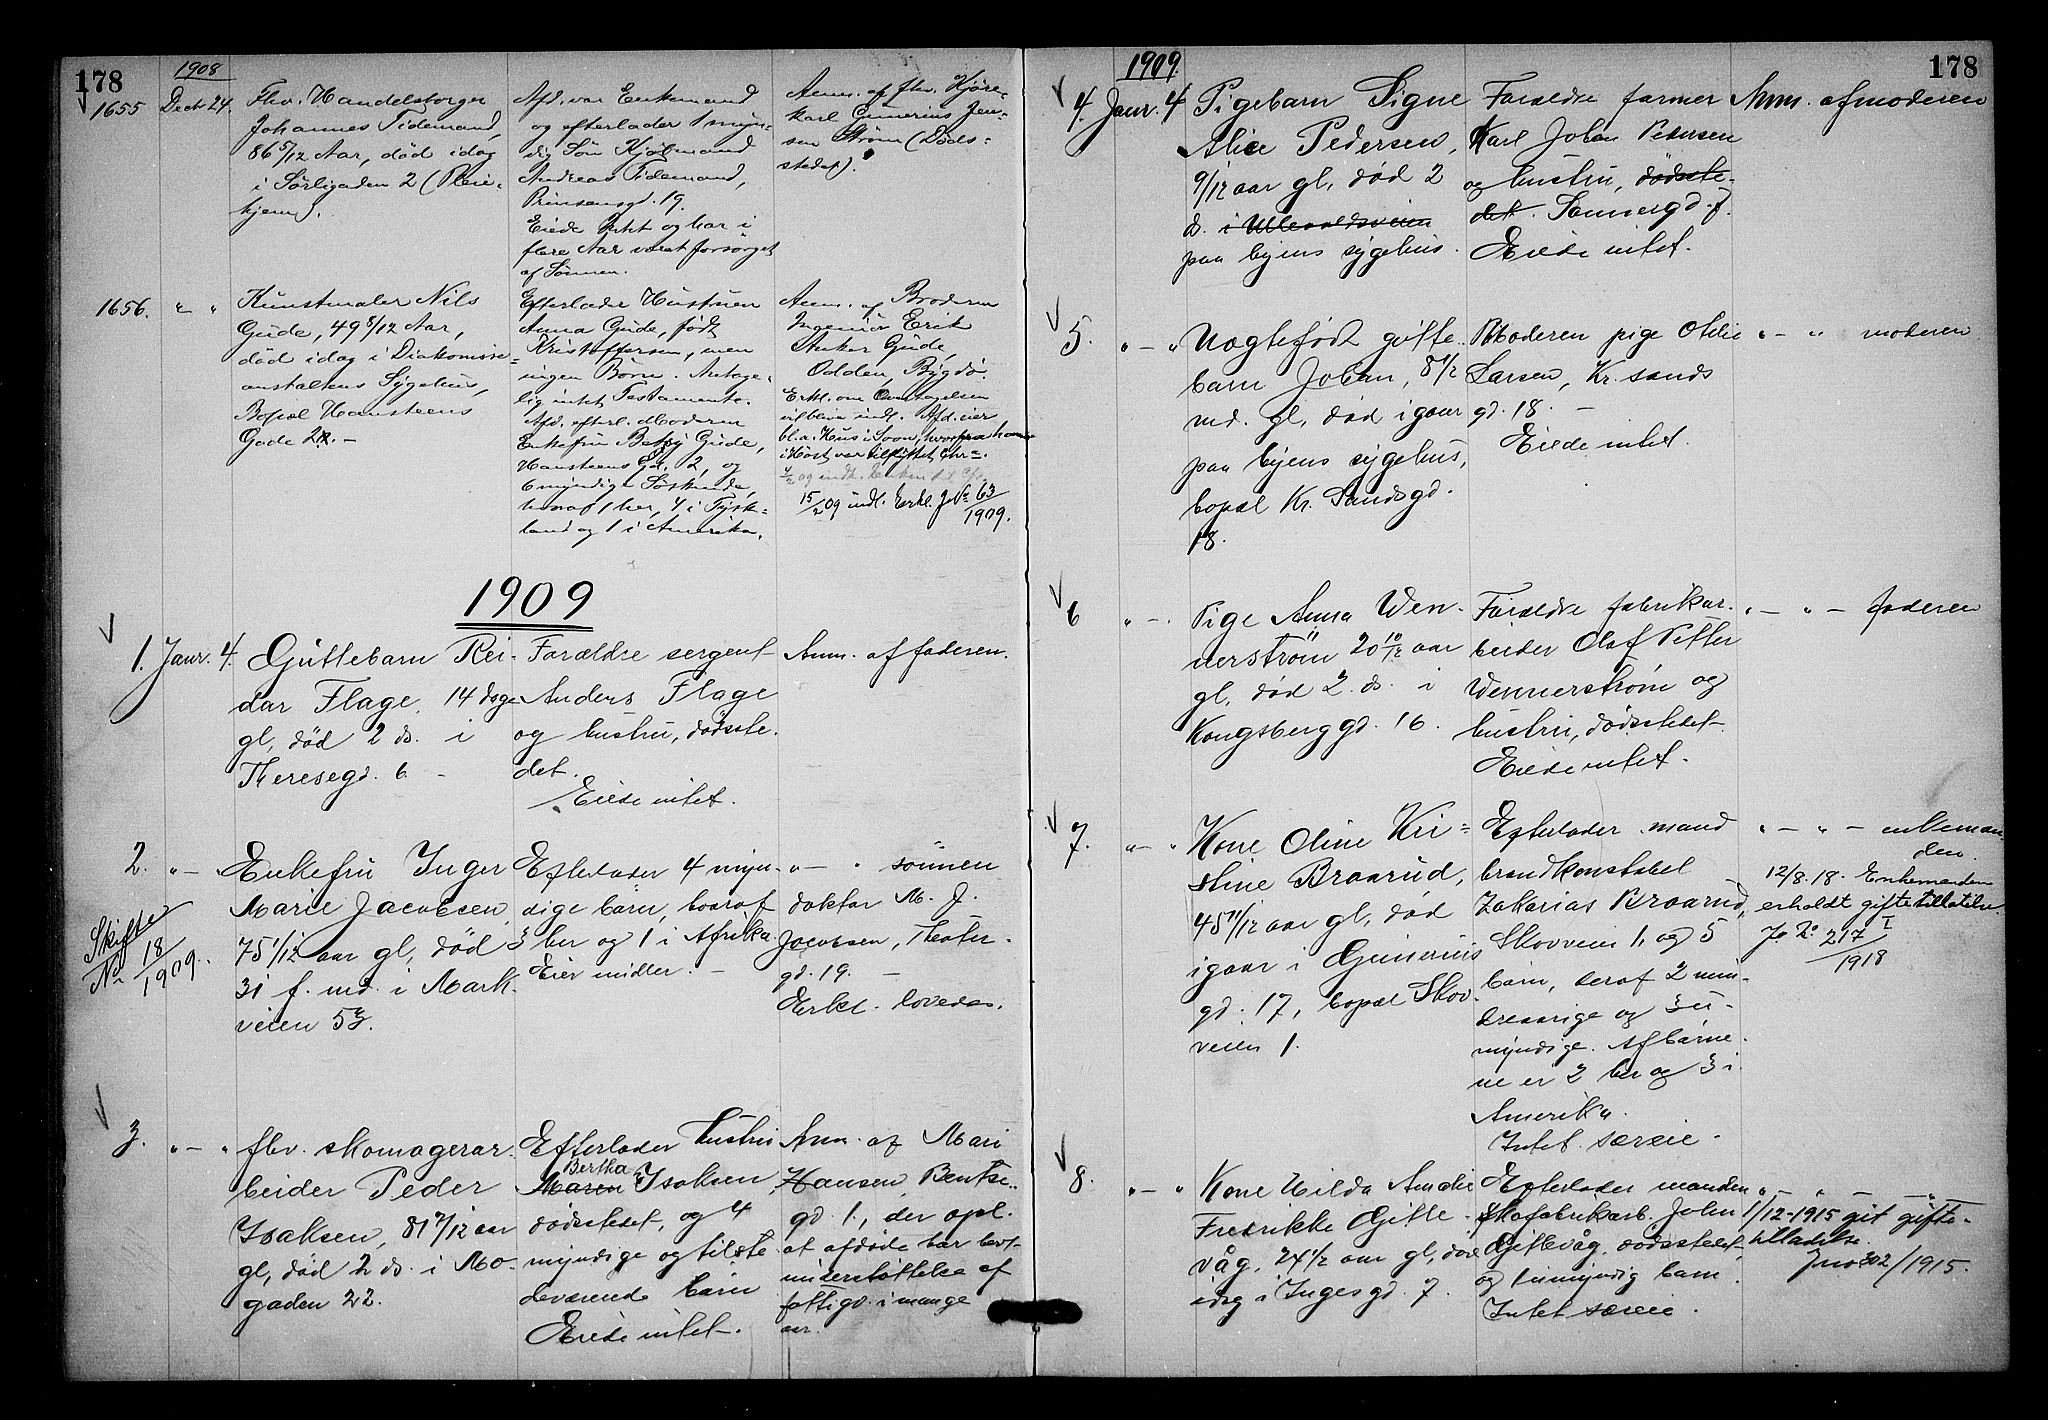 178
1908
1655 Decbr 24.
Fhv. Handelsborger
Johannes Tidemand,
86 5/12 Aar, død idag
i Sørligaden 2 (Pleie-
hjem).
Afd. var Enkemand
og efterlader 1 myn-
dig Søn Kjøbmand
Andreas Tidemand,
Prinsensgd. 19.
Eiede Intet og har i
flere Aar været forsørget
af Sønnen.
Anm. af fhv. Kjøre-
karl Gunerius Jen-
sen Strøm (Døds-
stedet).
1656. " "
Kunstmaler Nils
Gude, 49 8/12 Aar,
død idag i Diakonisse-
anstaltens Sygehus,
Bopæl Hansteens
Gade 2. -
Efterlader Hustruen
Anna Gude, født
Kristoffersen, men
ingen Børn. Antage-
lig intet Testamente.
Afd. efterl. Moderen
Enkefru Betsy Gude,
Hansteens Gd. 2, og
6 myndige Søskende,
hvoraf 1 her, 4 i Tysk-
land og 1 i Amerika.
Anm. af Broderen
Ingeniør Erik
Anker Gude,
Odden, Bygdø.
Erkl. om Overtagelsen
vil blive indl. Afd. eier
bl. a. Hus i Soon, hvorfra han
i Høst var tilflyttet
15/2 09 indl. Erkl. J No 63/1909.
1909
1. Janr. 4.
Guttebarn Rei-
dar Flage, 14 dage
gl, død 2 ds. i
Theresegd. 6 -
Forældre sergent
Anders Flage
og hustru, dødsste-
det.
Eiede intet.
Anm. af faderen.
2. " - 
Skifte
No 18/1909.
Enkefru Inger
Marie Jacobsen,
75 1/12 aar gl, død
31 f. md. i Mark-
veien 5
Efterlader 4 myn-
dige børn, hvoraf
3 her og 1 i Afrika.
Eier midler. -
" - " sønnen
doktor M. J.
Jacobsen, Theater-
gd. 19. -
Erkl. lovedes.
3. " - "
fhv. skomagerar-
beider Peder
Isaksen, 81 2/12 aar
gl, død 2 ds. i Mo-
gaden 22.
Efterlader hustru
Bertha
Maren Isaksen,
dødsstedet, og 4
myndige og tilste-
deværende børn
Eiede intet.
Anm. af Mari
Hansen, Bentse-
gd. 1, der opl.
at afdøde har havt
understøttelse af
fattigv. i mange
aar.
1909.
178
4. Janr. 4
Pigebarn Signe
Alice Pedersen,
9/12 aar gl, død 2
ds. i Ullevoldsveien
paa byens sygehus.
Forældre farmer
Karl Johan Petersen
og hustru, dødsste-
det. Sannergd. 7.
Eiede intet.
Anm. af moderen
5. " - "
Uægtefødt gutte-
barn Johan, 8 1/2
md. gl, død igaar
paa byens sygehus,
bopæl Kr. Sandsgd.
18.
Moderen pige Otilie
Larsen, Kr. sands
gd. 18. -
Eiede intet.
" - " moderen
6 " - .
Pige Anna Wen-
nerstrøm 20 10/12 aar
gl, død 2 ds. i
Kongsberggd. 16.
Forældre fabrikar-
beider Olaf Petter
Wennerstrøm og
hustru, dødsstedet
Eiede intet.
" - " - faderen
7. " - "
Kone Oline Kri-
stine Braarud,
45 11/12 aar gl, død
igaar i Gunerius
gd. 17, bopæl Skov-
veien 1.
Efterlader mand
brandkonstabel
Zakarias Braarud,
Skovveien 1, og 5
børn, deraf 2 min-
dreaarige og 3 u-
myndige. Af børne-
ne er 2 her og 3 i
Amerika.
Intet særeie.
" - " - enkeman-
den.
12/8. 18. Enkemanden
erholdt giftetilladelse.
J No 217 I/1918
8. " - "
Kone Hilda Amalie
Fredrikke Gitle-
våg, 24 1/2 aar gl, død
idag i Ingesgd. 7.
Efterlader manden
skofabrikarb. John
Gitlevåg, dødsstedet
og 1 umyndig barn.
Intet særeie.
" - " - "
1/12-1915 git gifte-
tilladelse.
Jno 302/1915.